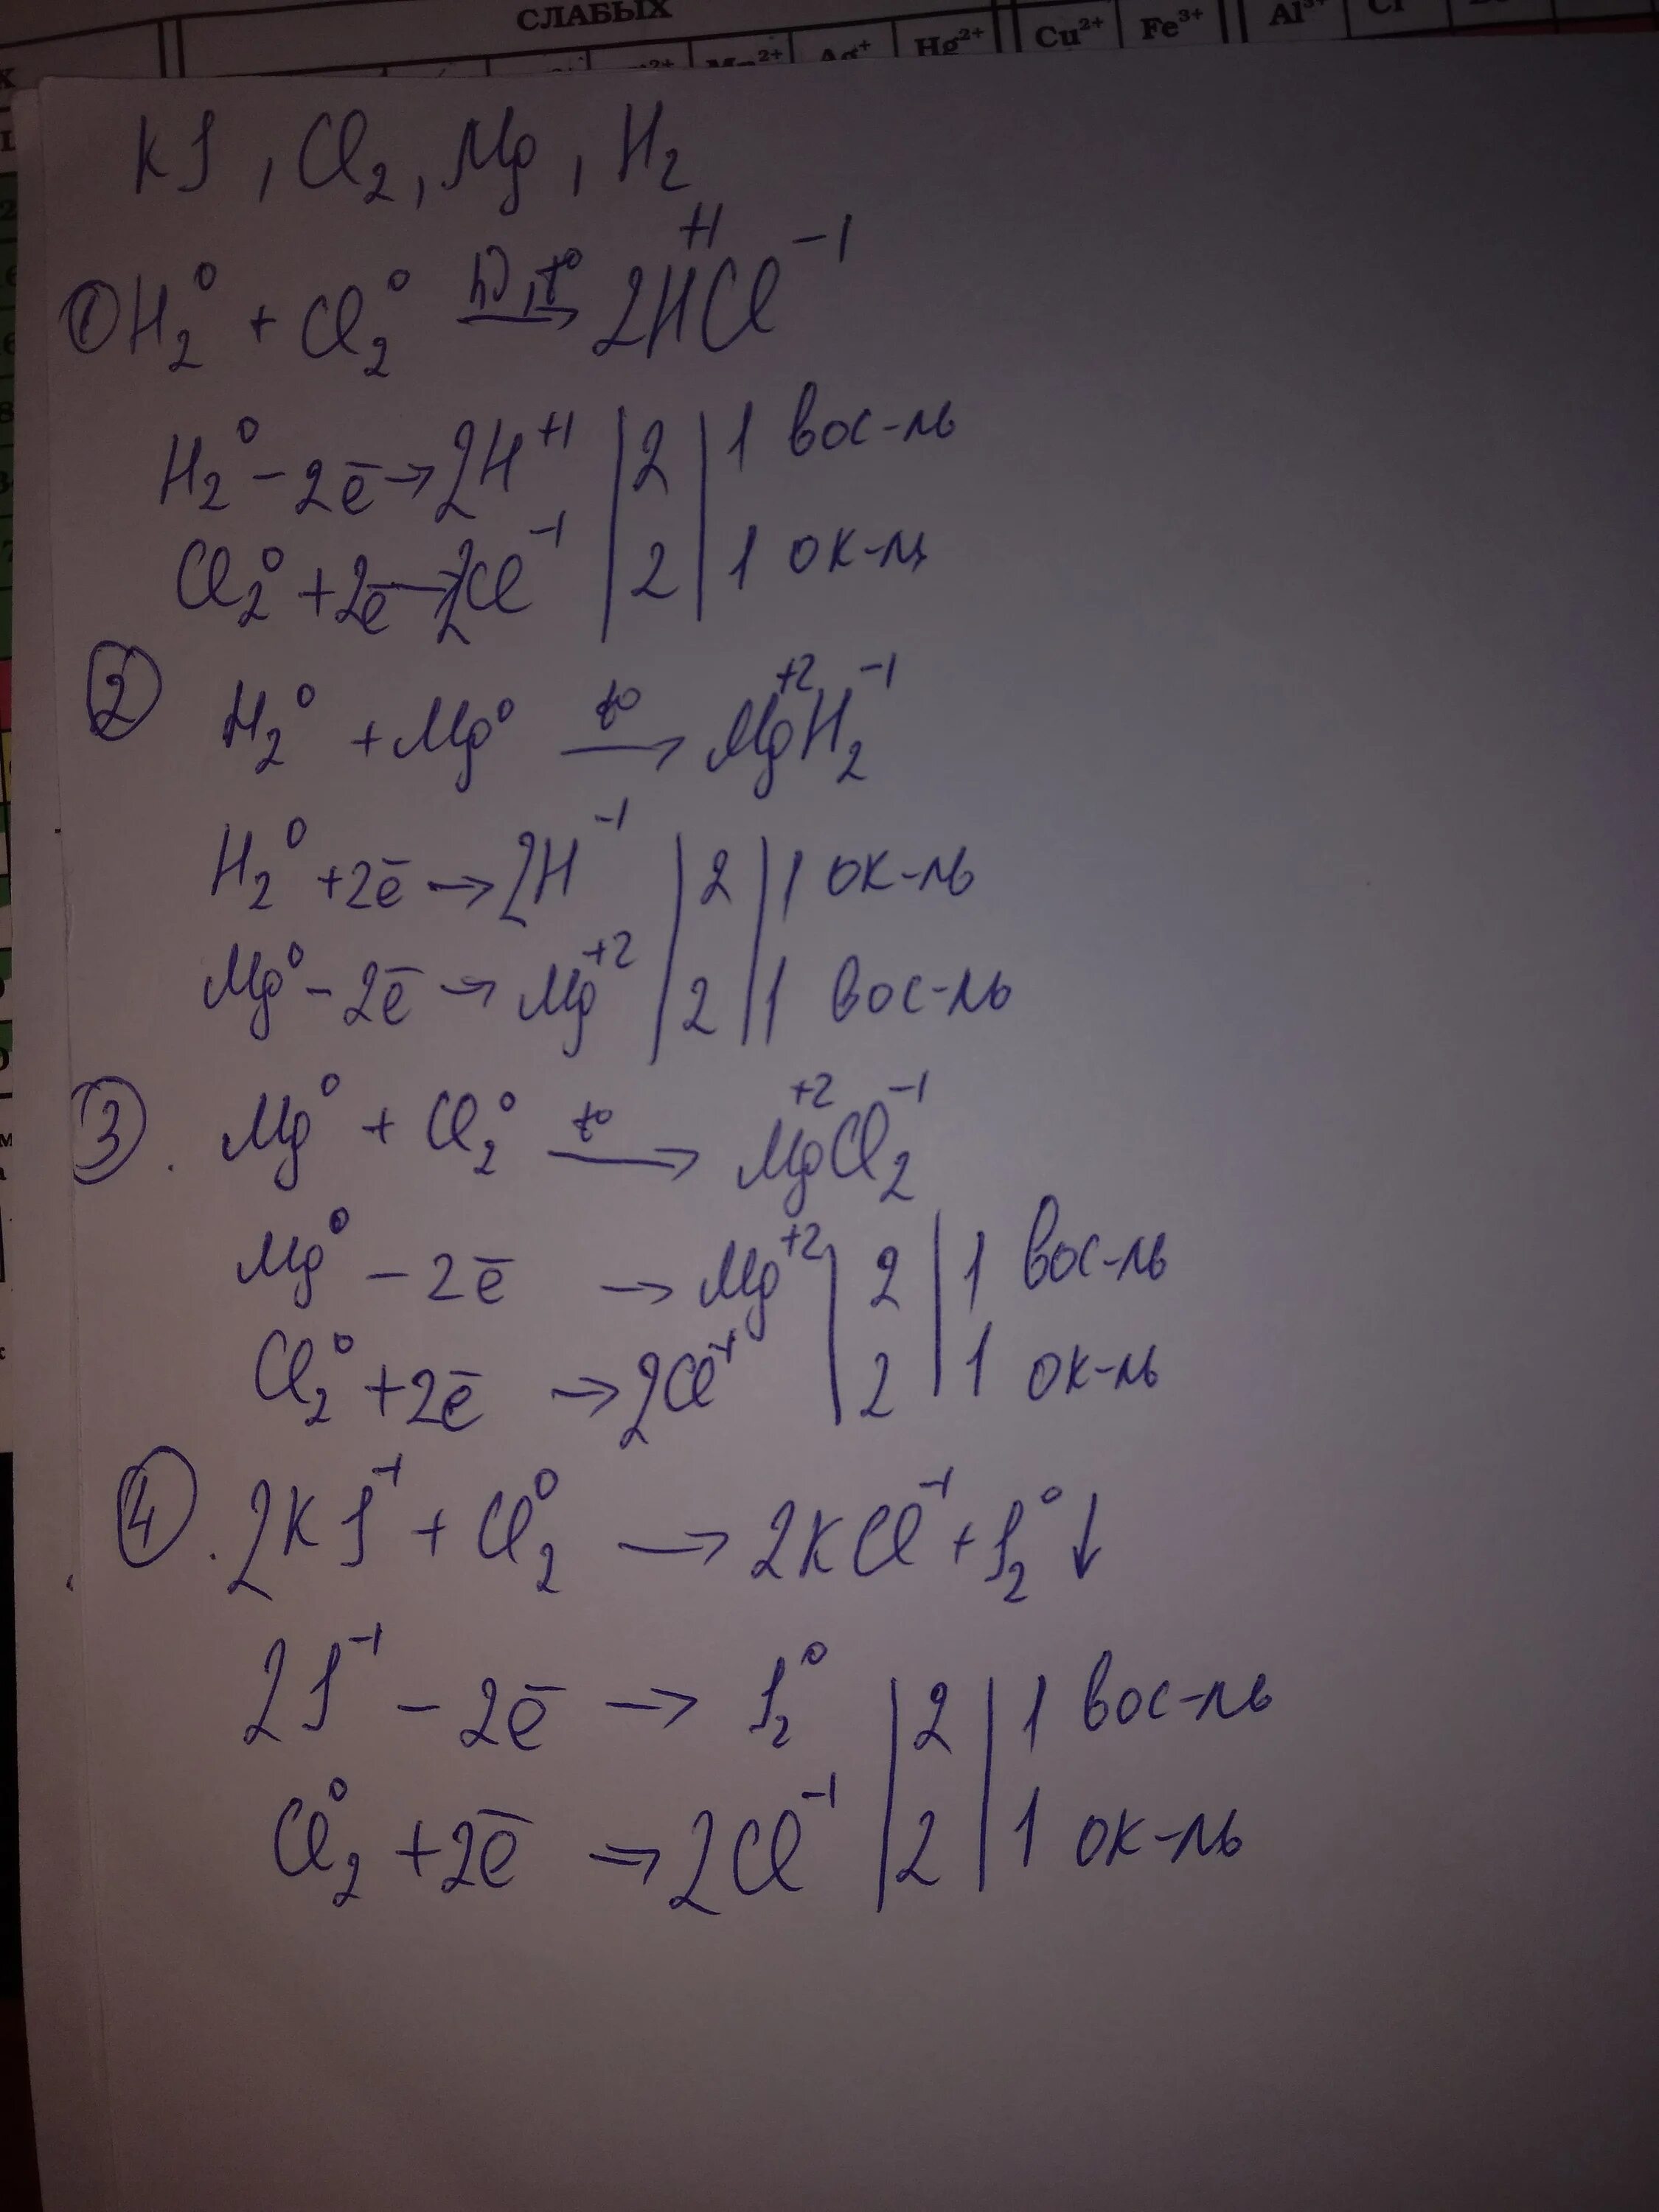 СЛАБЫХ
Hg²⁺ Cu²⁺ Fe³⁺ Al³⁺
KJ, Cl₂, Mg, H₂
① H₂⁰ + Cl₂⁰ –hν, t°→ 2H⁺¹Cl⁻¹
H₂⁰ – 2ē → 2H⁺¹ | 2 | 1 вос-ль
Cl₂⁰ + 2ē → 2Cl⁻¹ | 2 | 1 ок-ль
② H₂⁰ + Mg⁰ –t°→ Mg⁺²H₂⁻¹
H₂⁰ + 2ē → 2H⁻¹ | 2 | 1 ок-ль
Mg⁰ – 2ē → Mg⁺² | 2 | 1 вос-ль
③. Mg⁰ + Cl₂⁰ –t°→ Mg⁺²Cl₂⁻¹
Mg⁰ – 2ē → Mg⁺² | 2 | 1 вос-ль
Cl₂⁰ + 2ē → 2Cl⁻¹ | 2 | 1 ок-ль
④. 2KJ⁻¹ + Cl₂⁰ → 2KCl⁻¹ + J₂⁰ ↓
2J⁻¹ – 2ē → J₂⁰ | 2 | 1 вос-ль
Cl₂⁰ + 2ē → 2Cl⁻¹ | 2 | 1 ок-ль